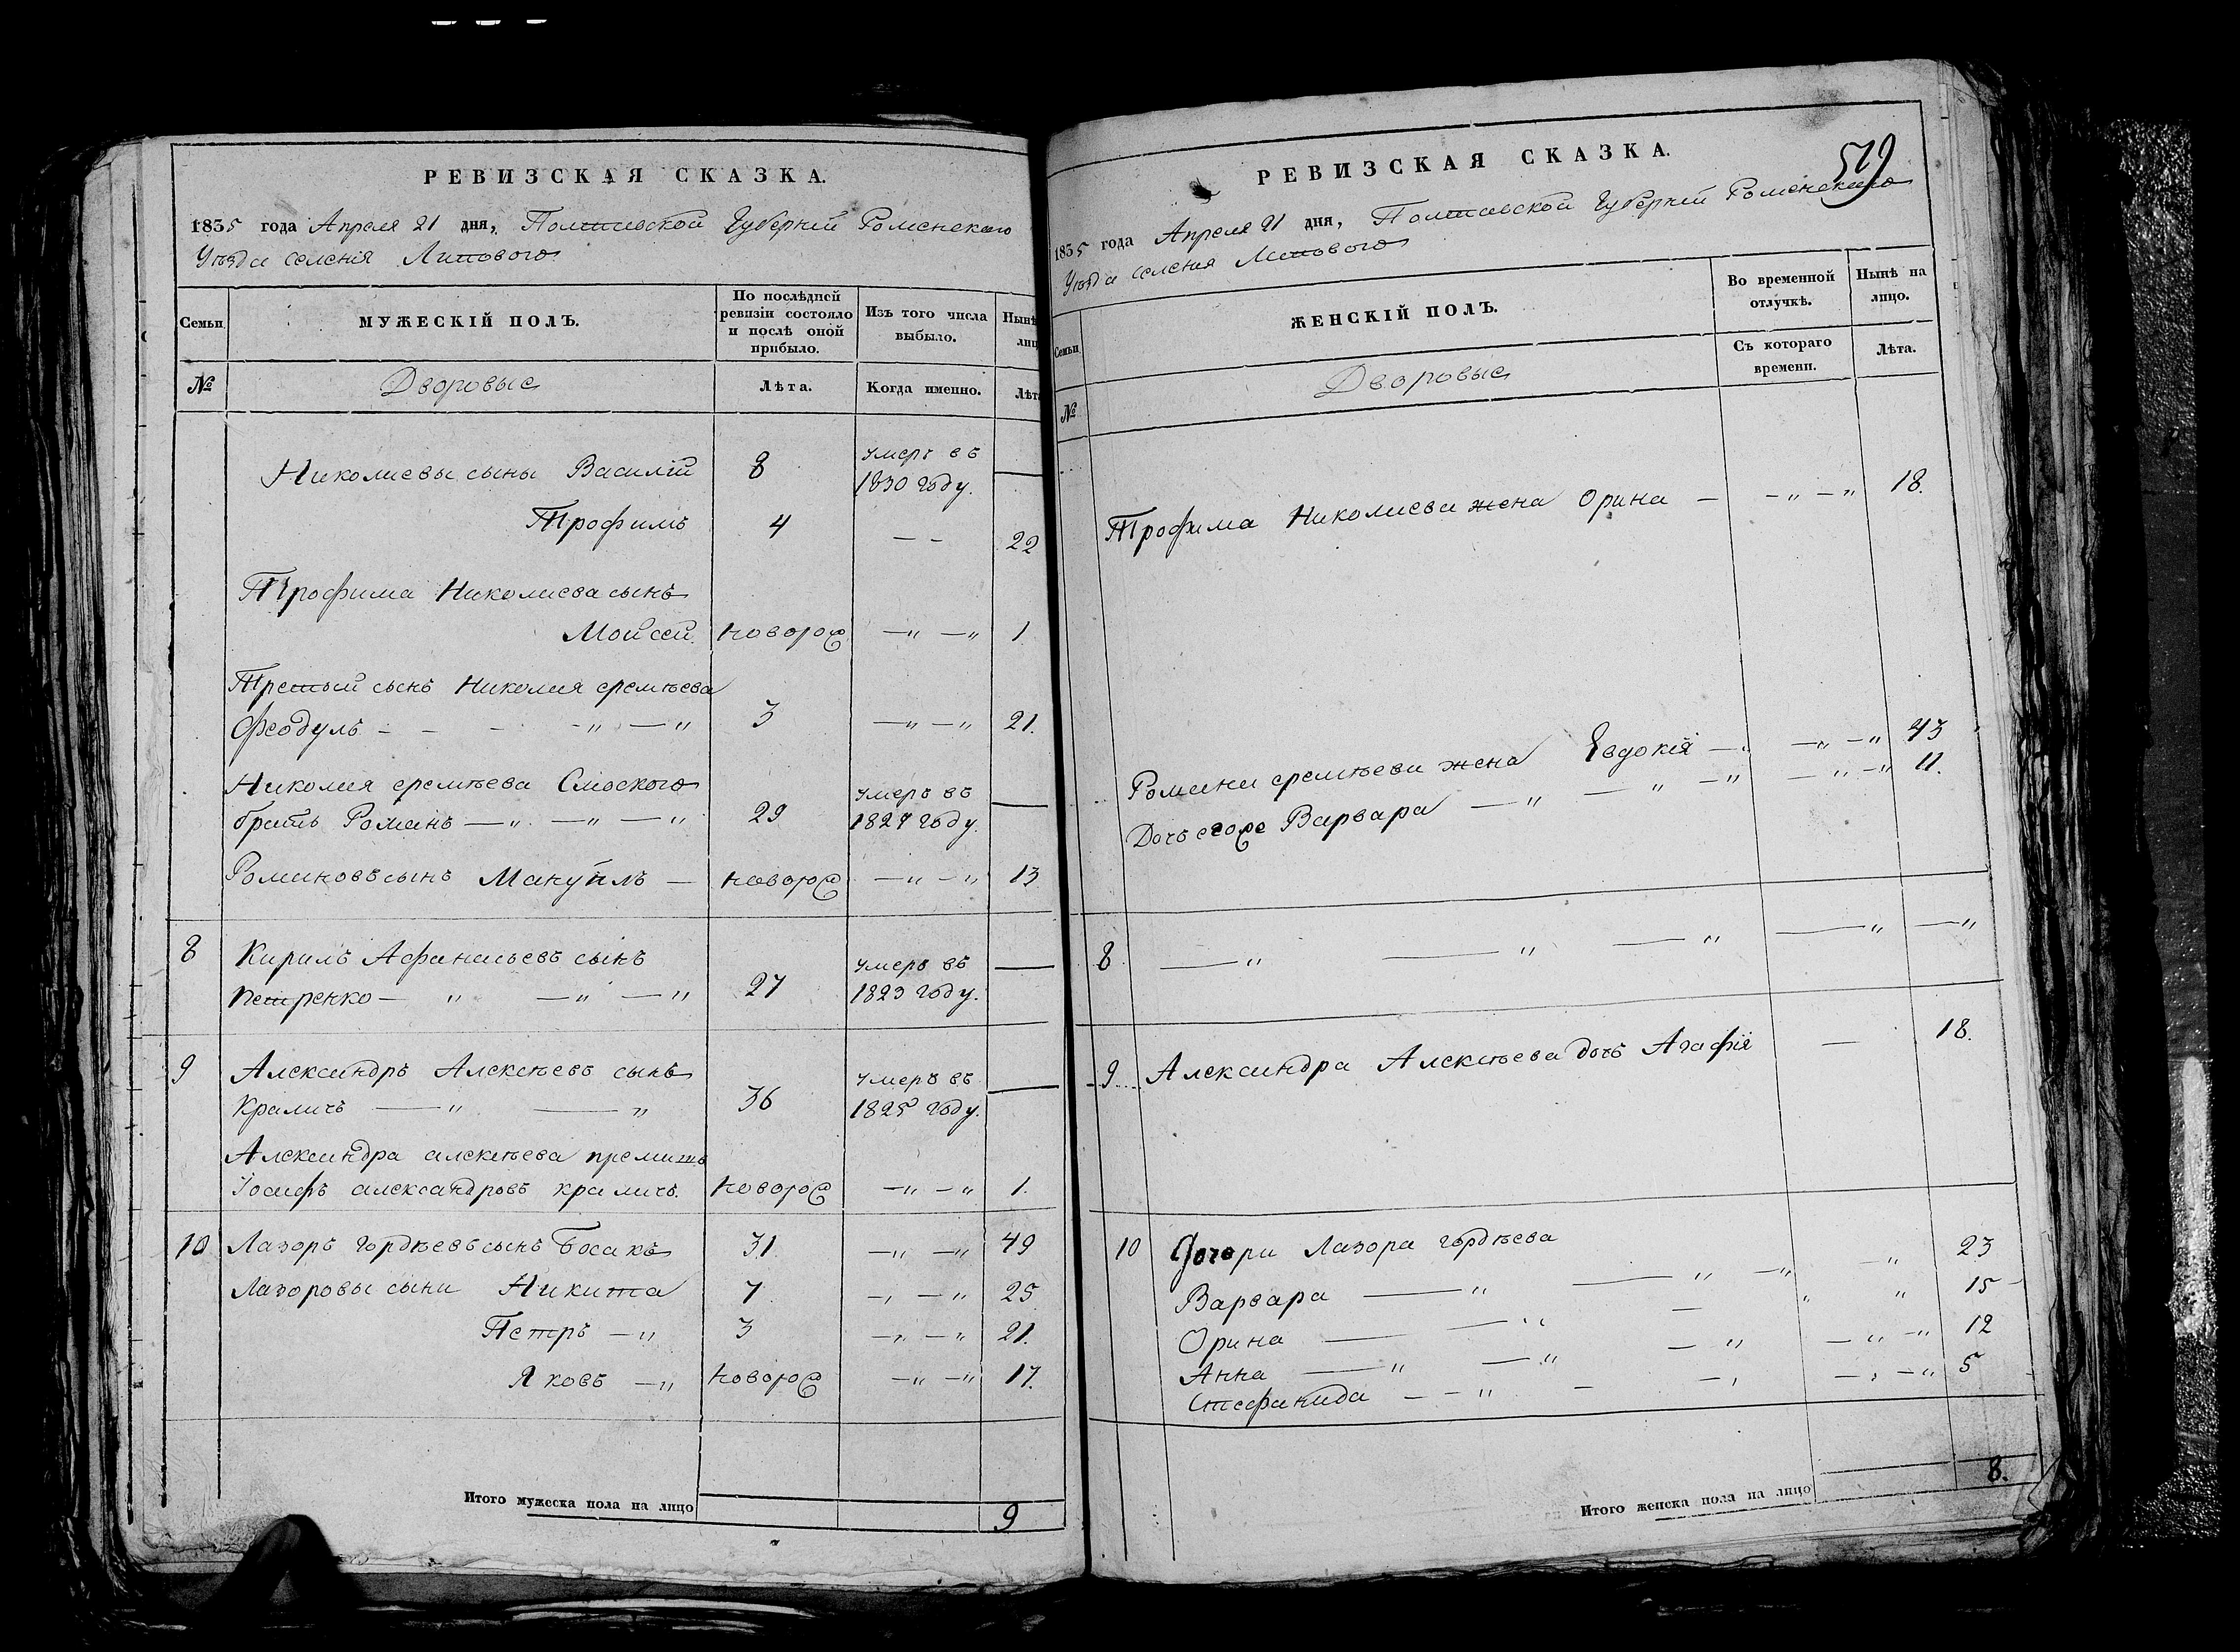 РЕВИЗСКАЯ СКАЗКА.
1835 года Апреля 21 дня, Полтавской Губерніи Роменскаго
Уѣзда селенія Липового
Семьи
МУЖЕСКІЙ ПОЛЪ.
По послѣдней ревизіи состояло и послѣ оной прибыло.
Изъ того числа выбыло.
Нынѣ
лиц
№
Дворовые
Лѣта.
Когда именно.
Лѣт
Николаевы сыны Василій 8 умеръ въ 1830 году. —
Трофимъ 4 — — 22
Трофима Николаева сынъ
Моисей. новорож —„ —„ 1
Третьий сынъ Николая еремѣева
Феодулъ — — — —„ —„ 3 —„ —„ 21.
Николая еремѣева
братъ Романъ —„ —„ —„ 29 умеръ въ 1827 году. —
Романовъ сынъ Мануйлъ — новорож —„ —„ 13
8 Кирилъ Афанасьевъ сынъ
Петренко — „ —„ —„ 27 умеръ въ 1823 году. —
9 Александръ Алексѣевъ сынъ
Краличъ —„ —„ 36 умеръ въ 1825 году. —
Александра алексѣева
Іосифъ александровъ краличъ. новорож —„ —„ 1.
10 Лазоръ гордѣевъ сынъ Босакъ 31. —„ —„ 49
Лазоровы сыни Никита 7 —„ —„ 25
Петръ —„ 3 —„ —„ 21.
Яковъ —„ новорож —„ —„ 17.
Итого мужеска пола на лицо 9
РЕВИЗСКАЯ СКАЗКА.
519
1835 года Апреля 21 дня, Полтавской Губерніи Роменскаго
Уѣзда селенія Липового
Семьи
ЖЕНСКІЙ ПОЛЪ.
Во временной отлучкѣ.
Нынѣ на лицо.
№
Дворовые
Съ котораго времени.
Лѣта.
Трофима Николаева жена Орина — —„ —„ 18.
Романа еремѣева жена Евдокія —„ —„ —„ 43
Дочь егоже Варвара —„ —„ —„ —„ —„ 11.
8 —„ —„ —„ —„ —„
9 Александра Алексѣева дочь Агафія — 18.
10 Дочери Лазора гордѣева
Варвара —„ —„ —„ —„ 23
Орина — —„ — „ „ 15
Анна —„ —„ —„ —„ —„ 12
Стефанида — —„ — —„ —„ —„ 5
Итого женска пола на лицо 8.